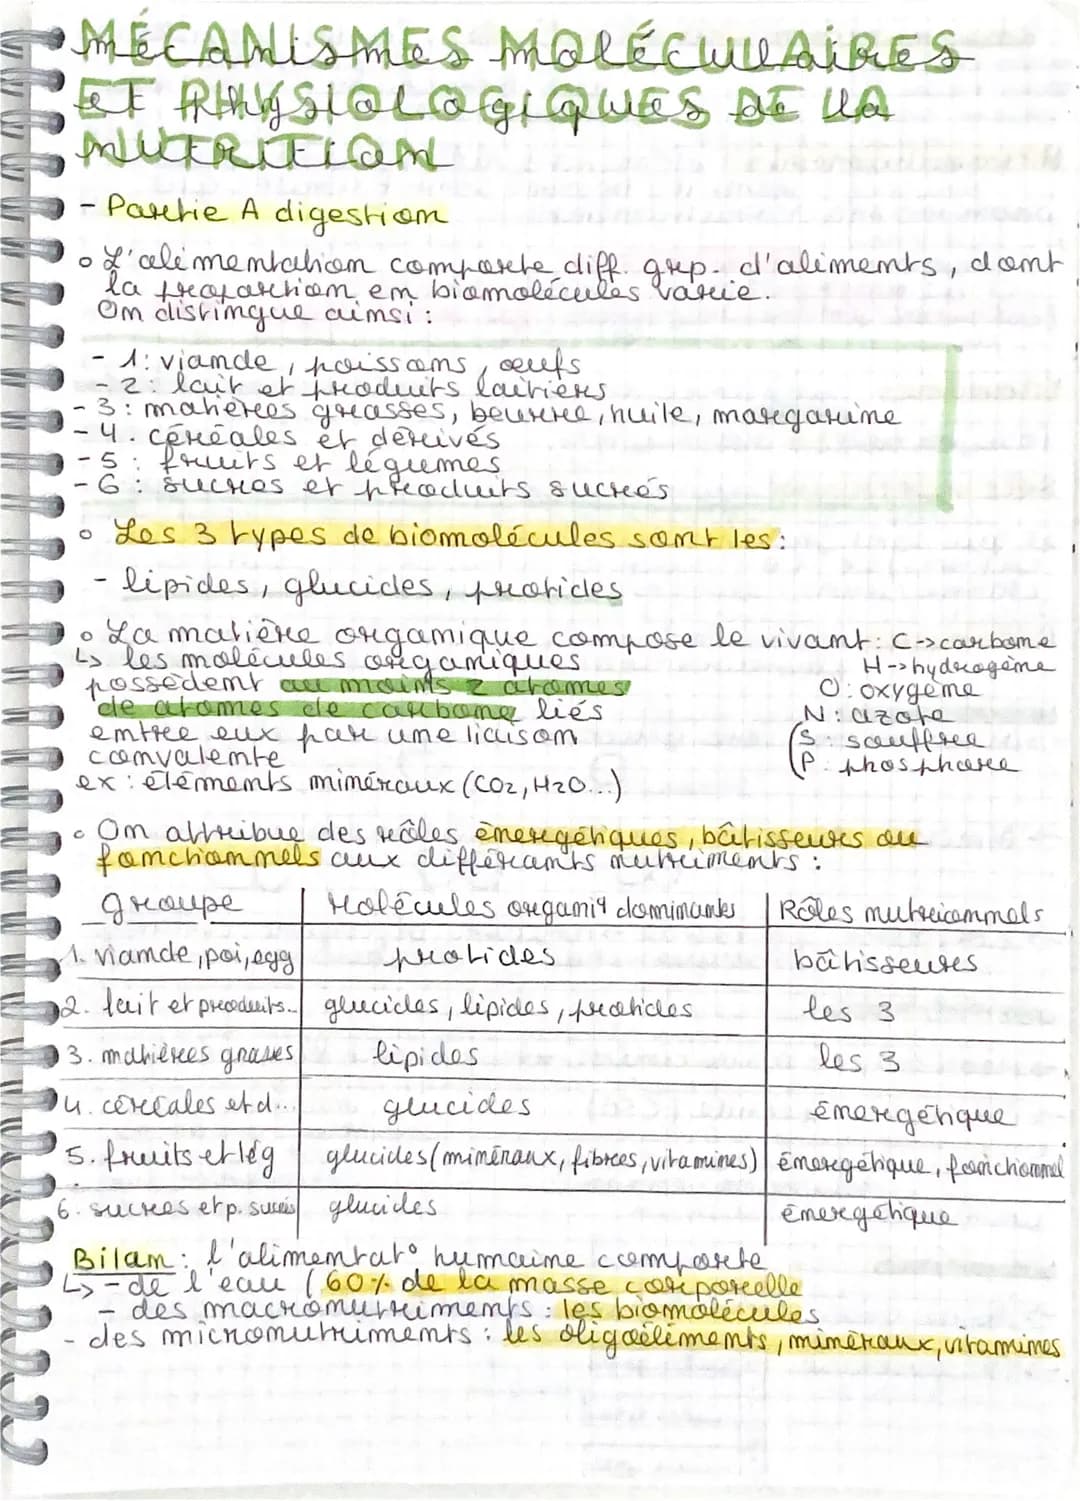 MÉCANISMES MOLÉCULLAIRES
ET PHYSIOLOGIQUES DE LA
NUTRITION
- Partie A digestion
o L'alimentation comporte diff. grp. d'aliments, dont
la proportion en biomolécules varie.
On distingue ainsi :
- 1: viande, poissons, œufs
- 2: lait et produits laitiers
- 3: matières grasses, beurre, huile, margarine
- 4. céréales et dérivés
- 5 : fruits et légumes
- 6 : sucres et produits sucrés
o Les 3 types de biomolécules sont les :
- lipides, glucides, protides
o La matière organique compose le vivant : C -> carbone
↳ les molécules organiques H -> hydrogène
possèdent au moins 2 atomes O : oxygène
de atomes de carbone liés N : azote
entre eux par une liaison (S : souffre
convalente (P : phosphore
ex : éléments minéraux (CO2, H2O...)
o On attribue des rôles énergétiques, bâtisseurs ou
fonctionnels aux différants nutriments :
groupe Molécules organiq dominantes Rôles nutricionnels
1. viande, poi, egg protides bâtisseurs
2. lait et produits... glucides, lipides, protides les 3
3. matières grases lipides les 3
4. céréales et d... glucides énergétique
5. fruits et lég glucides (minéraux, fibres, vitamines) énergétique, fonctionnel
6. sucres et p. sucrés glucides énergétique
Bilan : l'alimentat° humaine comporte
↳ - de l'eau (60% de la masse corporelle
- des macronutriments : les biomolécules
- des micronutriments : les oligoéléments, minéraux, vitamines